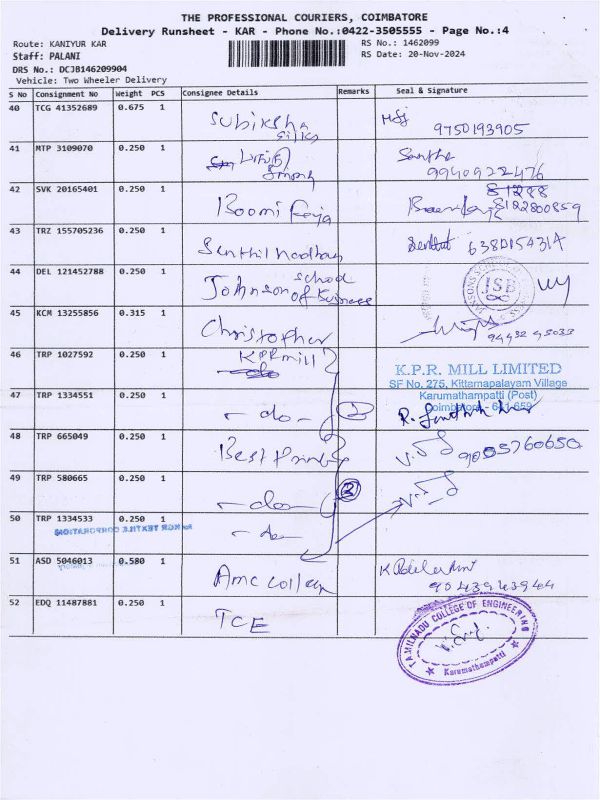 THE PROFESSIONAL COURIERS, COIMBATORE
Delivery Runsheet - KAR - Phone No.:0422-3505555 - Page No.:4
Route: KANIYUR KAR RS No.: 1462099
Staff: PALANI RS Date: 20-Nov-2024
DRS No.: DCJB146209904
Vehicle: Two Wheeler Delivery
S No Consignment No Weight PCS Consignee Details Remarks Seal & Signature
40 TCG 41352689 0.675 1 Subiksha
silks 9750193905
41 MTP 3109070 0.250 1
9940922476
42 SVK 20165401 0.250 1 Boomi Raja 8122800859
43 TRZ 155705236 0.250 1 Senthil nadhan
44 DEL 121452788 0.250 1 Johnson School
of Business JSB
45 KCM 13255856 0.315 1 Christopher
46 TRP 1027592 0.250 1 KPR mill
K.P.R. MILL LIMITED
SF No. 275, Kittamapalayam Village
Karumathampatti (Post)
Coimbatore - 641 659
47 TRP 1334551 0.250 1 - do - 2
48 TRP 665049 0.250 1 Best Prints
49 TRP 580665 0.250 1 - do - 3
50 TRP 1334533 0.250 1 - do -
For NGR TEXTILE CORPORATION
51 ASD 5046013 0.580 1 Amc College
9043943944
52 EDQ 11487881 0.250 1 TCE
TAMILNADU COLLEGE OF ENGINEERING
Karumathampatti